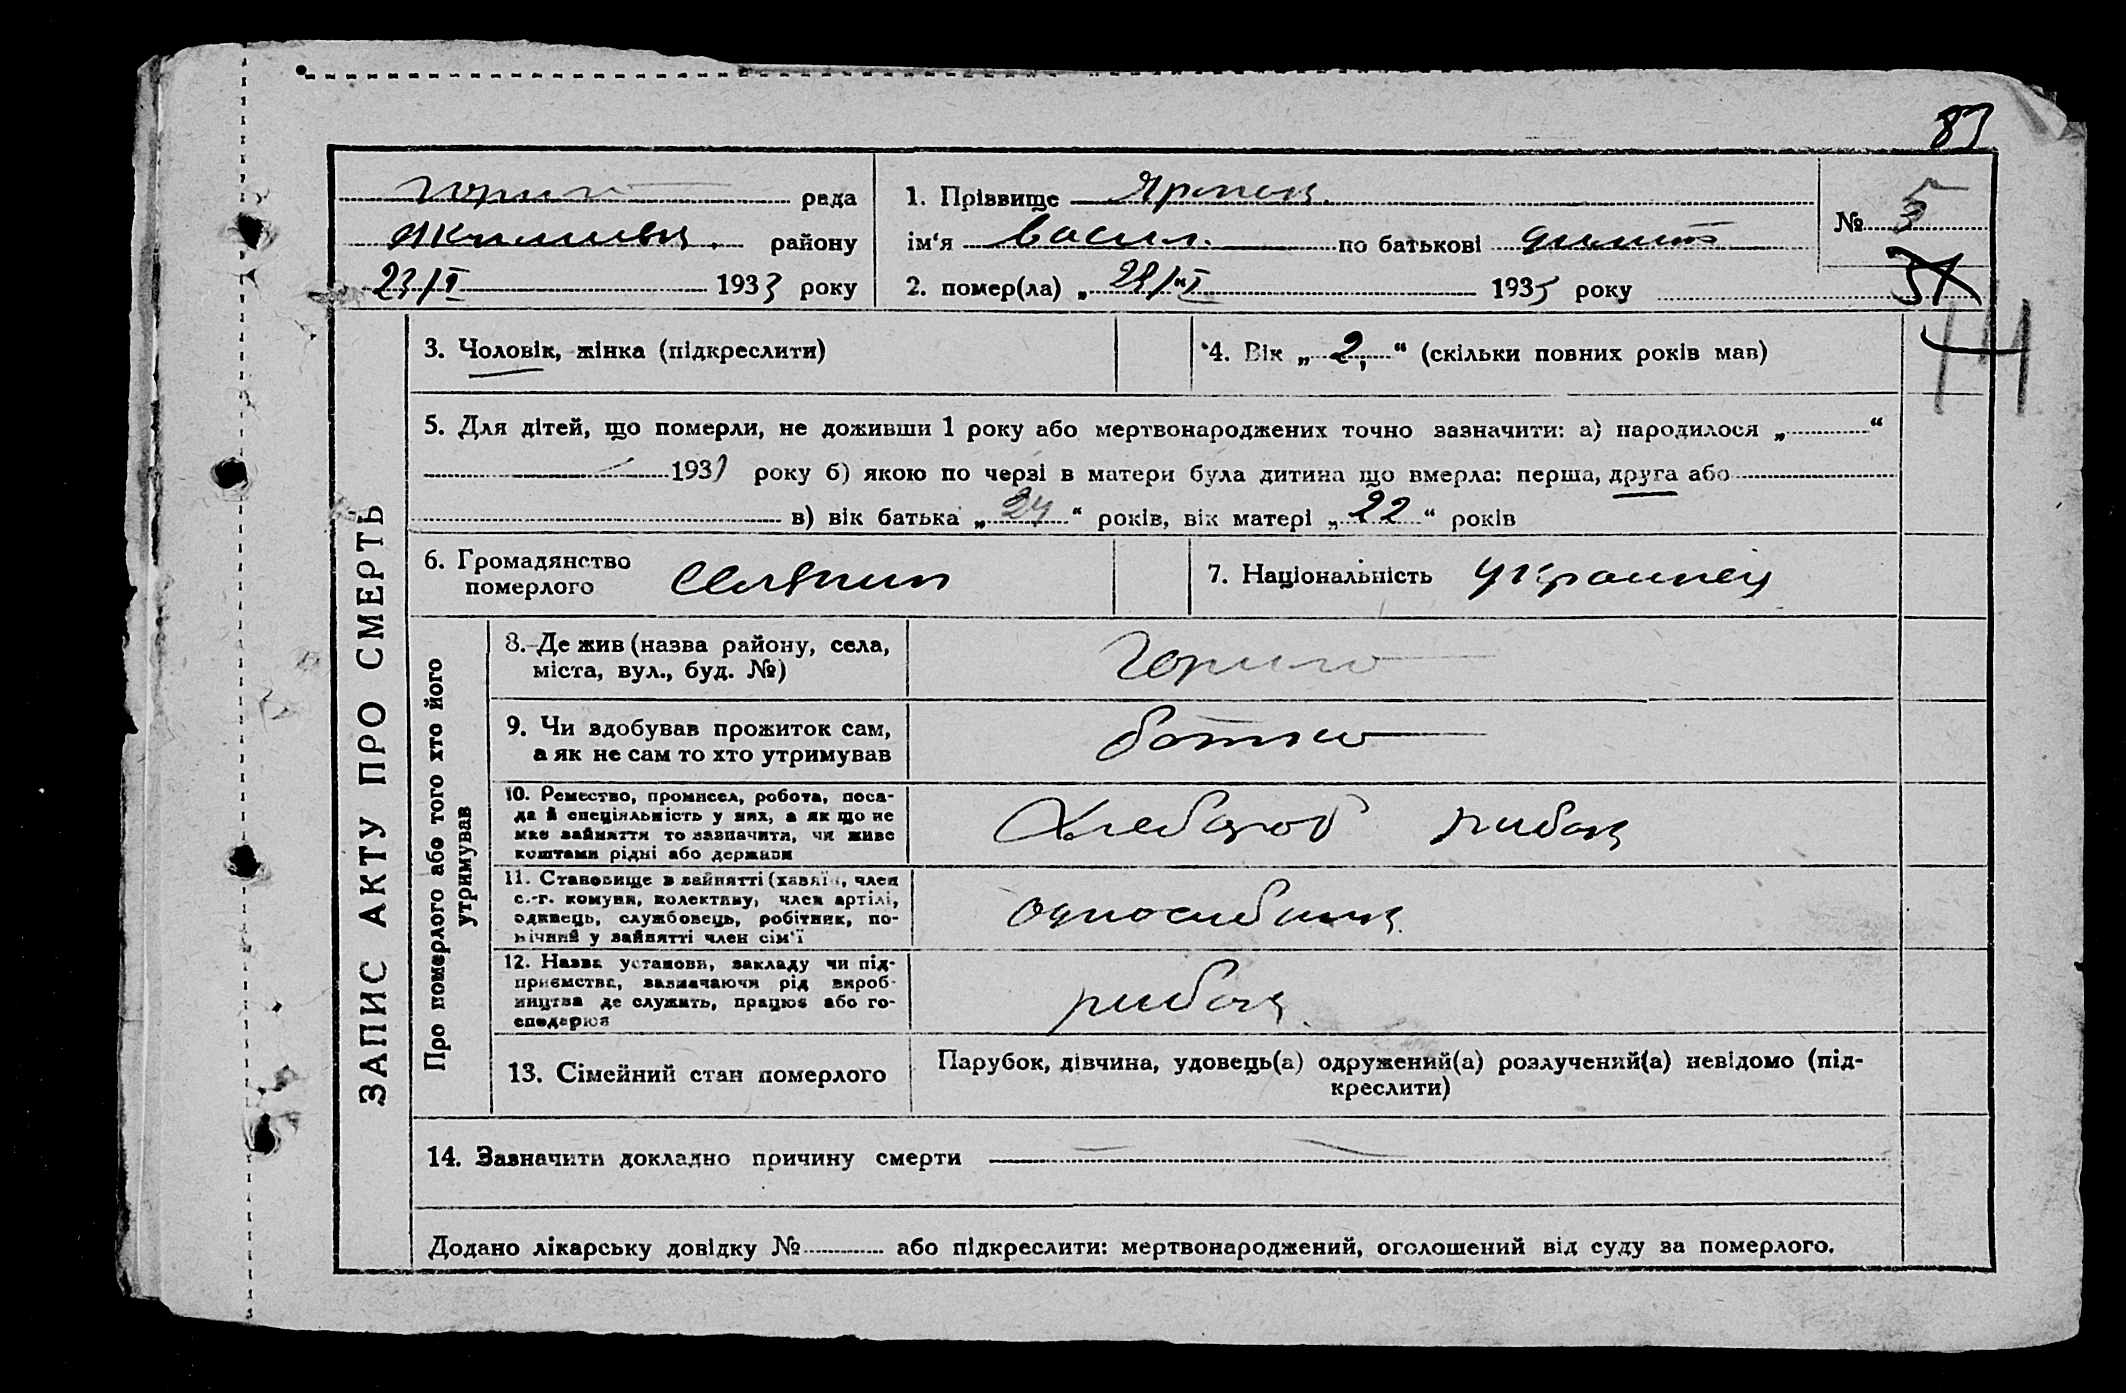 83
рада
району
23/I 1933 року
1. Пріввище
ім'я Васил. по батькові
2. помер(ла) „ 1935 року
№ 5
3. Чоловік, жінка (підкреслити)
4. Вік „ 2, “ (скільки повних років мав)
5. Для дітей, що померли, не доживши 1 року або мертвонароджених точно зазначити: а) народилося „ “
193 року б) якою по черзі в матери була дитина що вмерла: перша, друга або
в) вік батька „ 24 “ років, вік матері „ 22 “ років
6. Громадянство
померлого Селянин
7. Національність Украинец
ЗАПИС АКТУ ПРО СМЕРТЬ
Про померлого або того хто його
утримував
8. Де жив (назва району, села,
міста, вул., буд. №)
9. Чи здобував прожиток сам,
а як не сам то хто утримував
батько
10. Ремество, промисел, робота, поса-
да й спеціяльність у них, а як що не
має зайняття то зазначити, чи живе
коштами рідні або держави
Хлебороб рибак
11. Становище в зайнятті (хазяїн, член
с.-г. комуни, колективу, член артілі,
одинець, службовець, робітник, по-
мічний у зайнятті член сім'ї
12. Назва установи, закладу чи під-
приємства, зазначаючи рід вироб-
ництва де служить, працює або го-
сподарює
рибак.
13. Сімейний стан померлого
Парубок, дівчина, удовець(а) одружений(а) розлучений(а) невідомо (під-
креслити)
14. Зазначити докладно причину смерти
Додано лікарську довідку № або підкреслити: мертвонароджений, оголошений від суду за померлого.